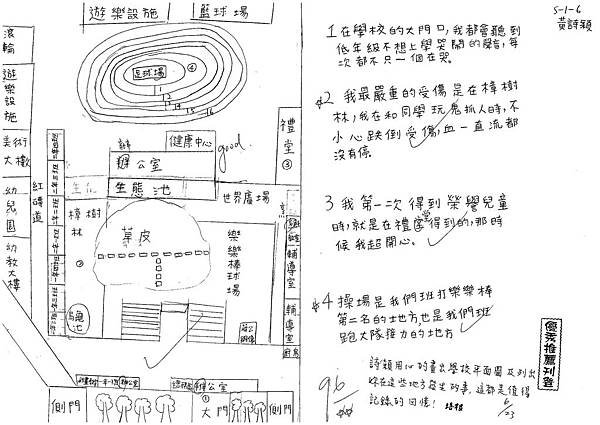 遊樂設施
籃球場
滾輪
遊樂設施
美術大樓
幼兒園
幼教大樓
紅磚道
足球場
④
1
12
13
14
15
16
健康中心
good
禮堂
③
辦公室
生態池
世界廣場
樟樹林
②
草皮
樂樂棒球場
輔導室
輔導室
廚房
烏龜池
側門
①大門
側門
5-1-6
黃詩穎
1 在學校的大門口,我都會聽到
低年級不想上學哭鬧的聲音,每
次都不只一個在哭。
2 我最嚴重的受傷是在樟樹
林,我在和同學玩鬼抓人時,不
小心跌倒受傷,血一直流都
沒有停。
3 我第一次得到榮譽兒童
時,就是在禮堂得到的,那時
候我超開心。
4 操場是我們班打樂樂棒
第二名的地方,也是我們班
跑大隊接力的地方
優秀推薦刊登
96
詩穎用心的畫出學校平面圖及列出
妳在這些地方發生的事,這都是值得
記錄的回憶!
6/23